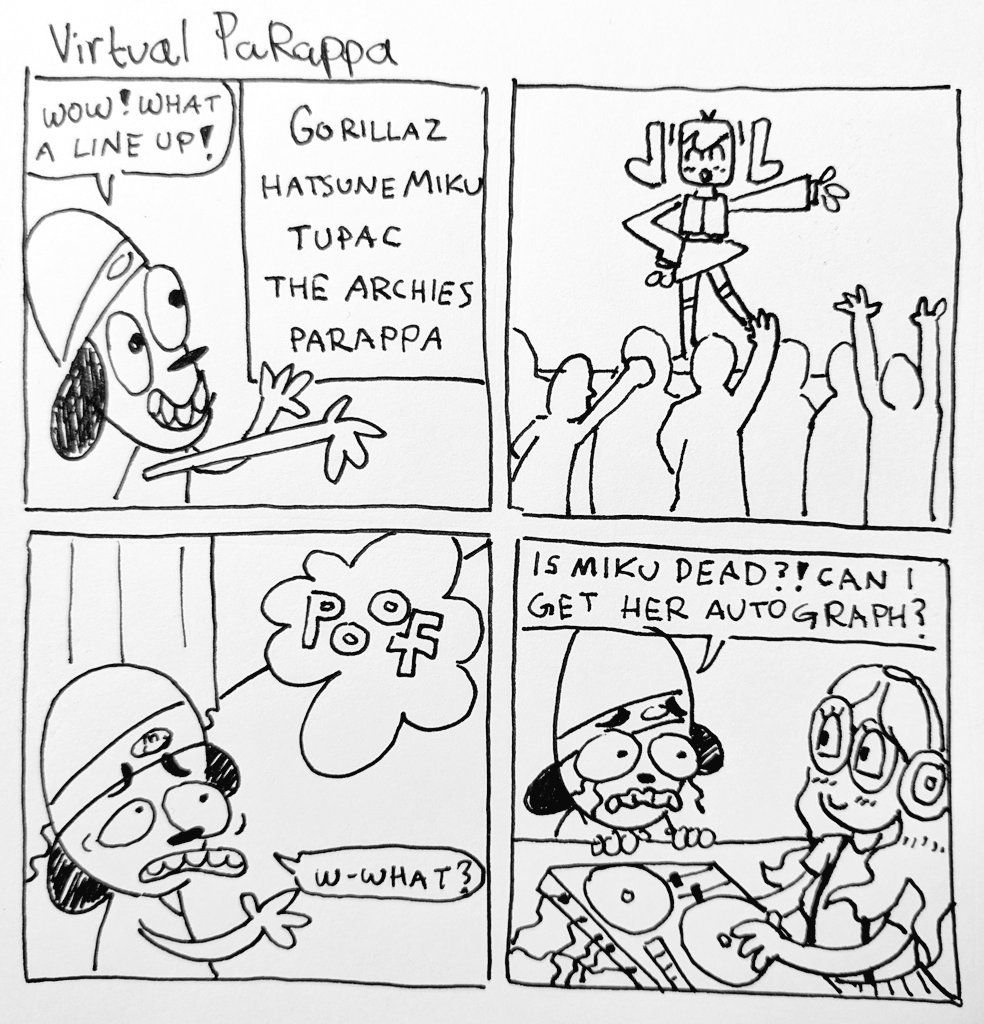 Virtual PaRappa
WOW! WHAT
A LINE UP!
GORILLAZ
HATSUNE MIKU
TUPAC
THE ARCHIES
PARAPPA
POOF
W-WHAT?
IS MIKU DEAD?! CAN I
GET HER AUTOGRAPH?